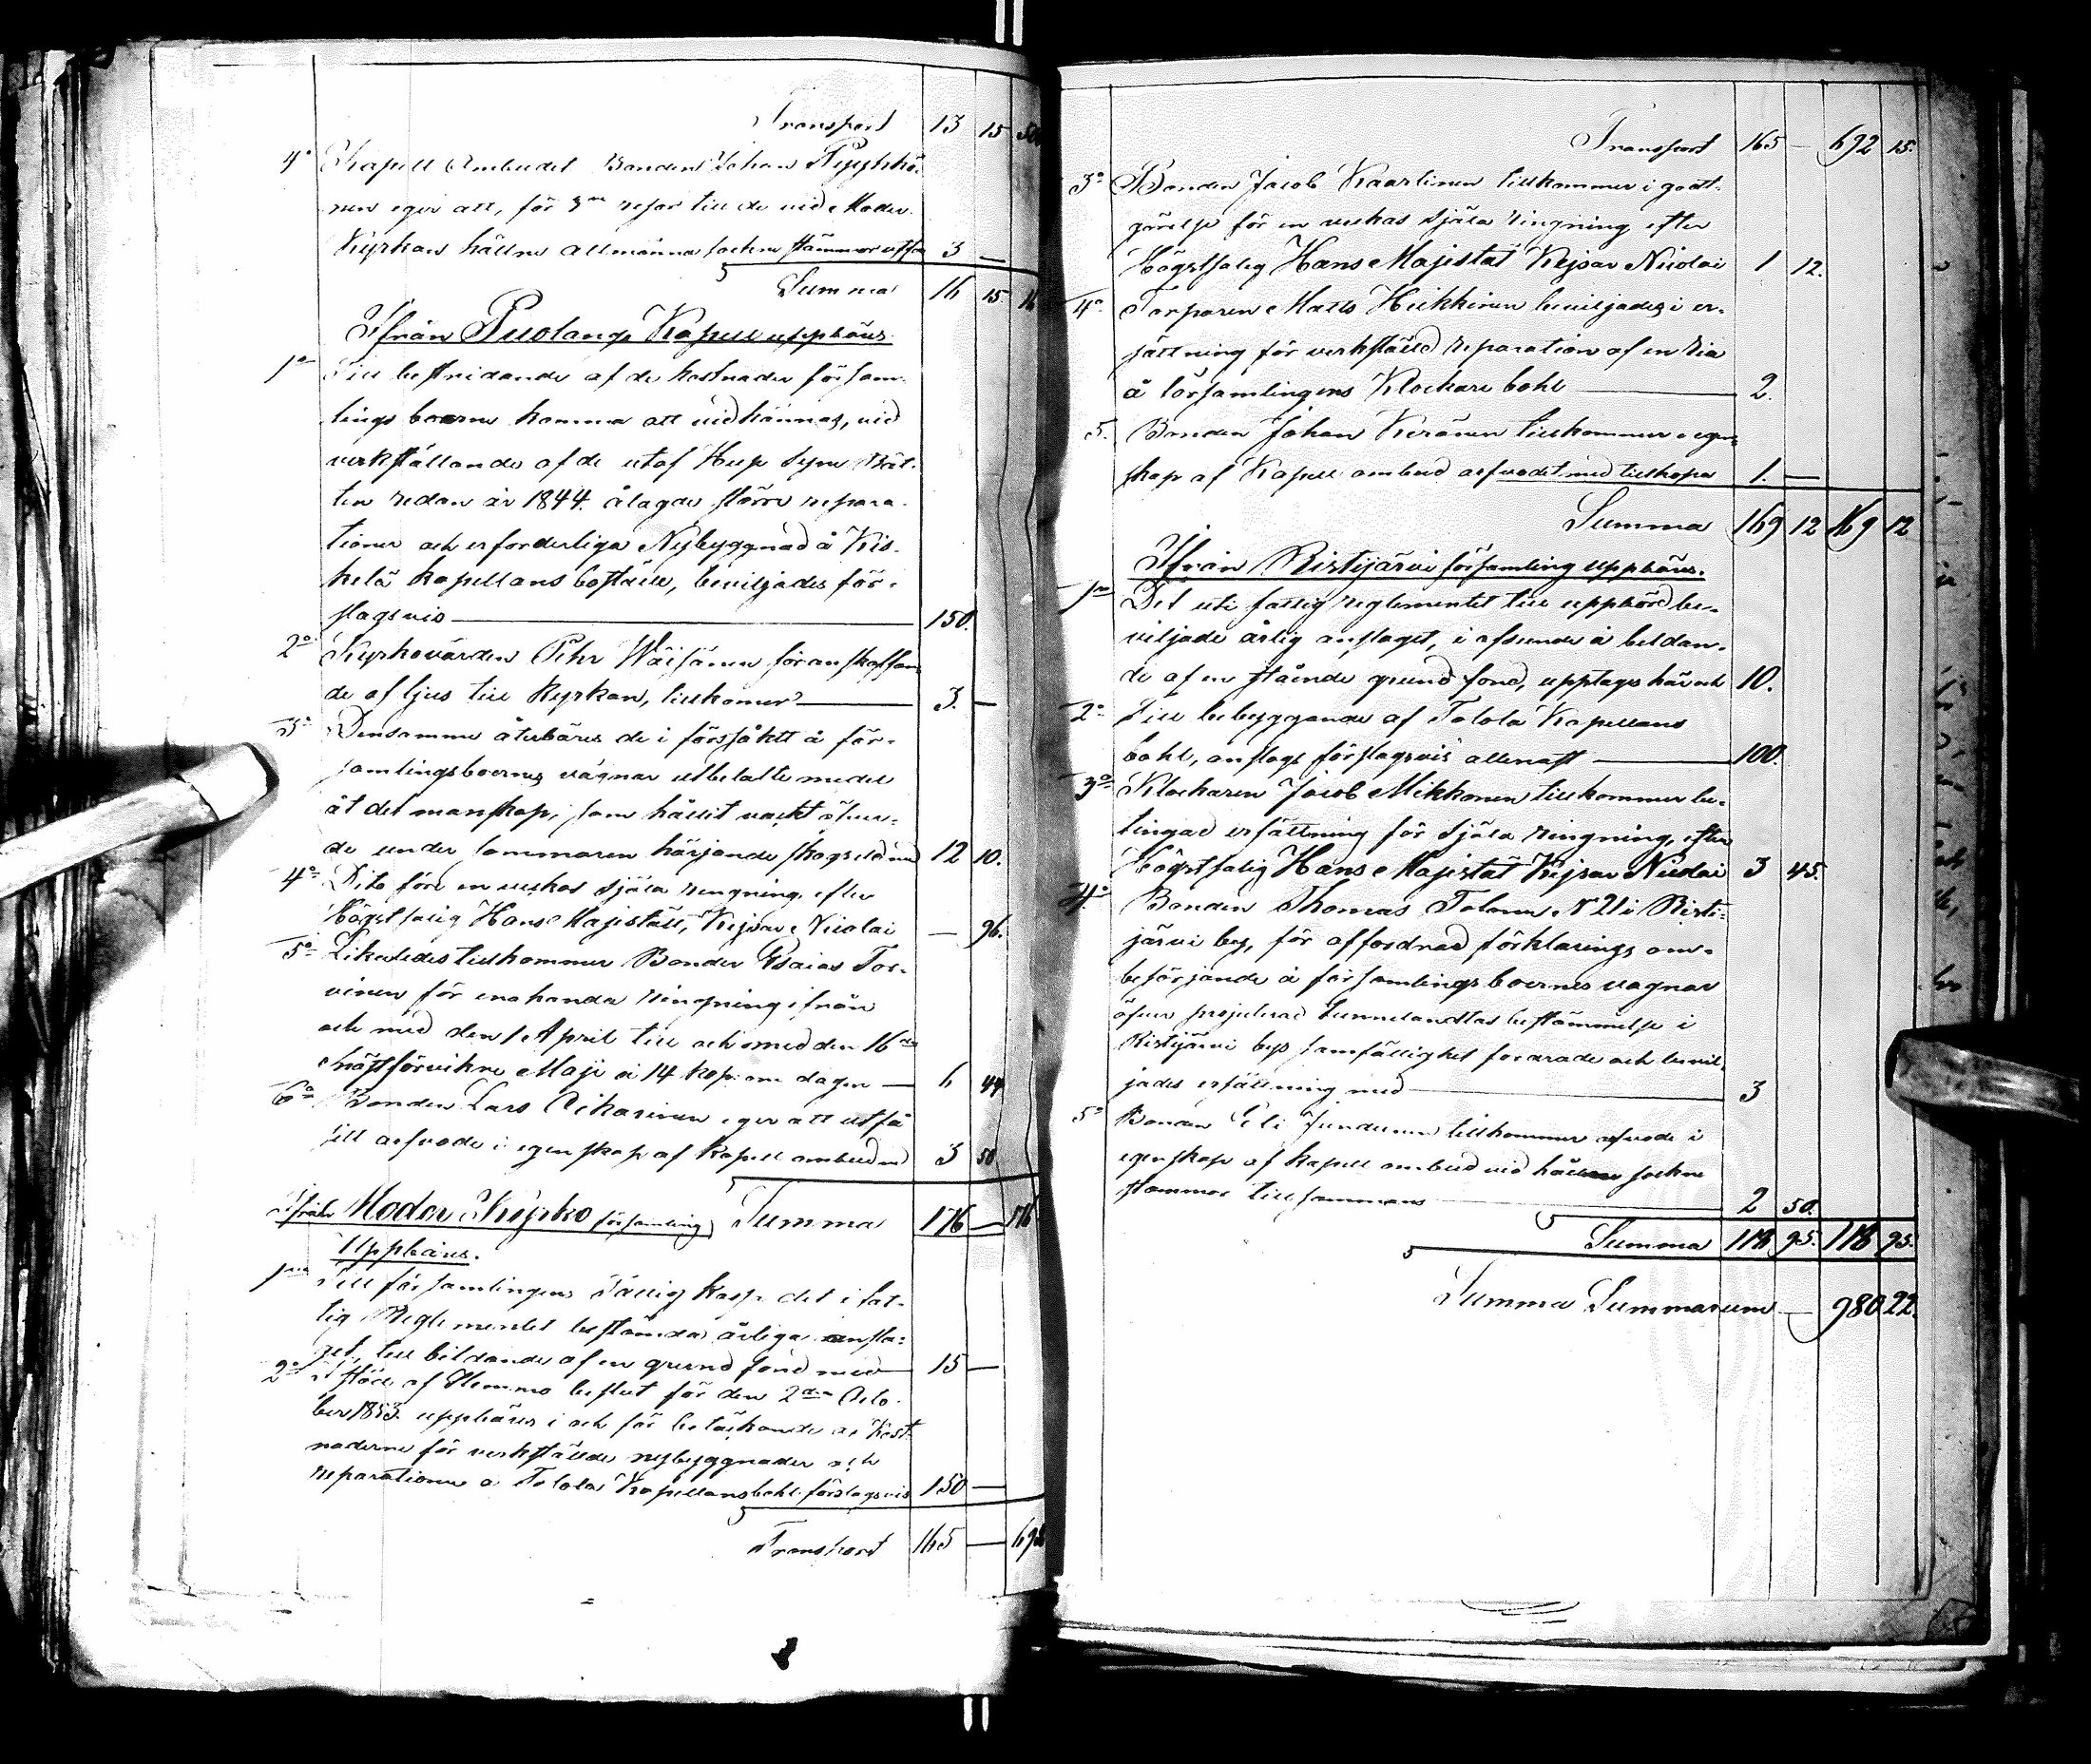 Transport 13 15
4o Kapell Ombudet Bonden Johan Pyykkö-
nen eger att, för 3ne resor till de vid Moder
Kyrkan hållne allmänna sockne stämmor utfå 3 —
Summa 16 15 16
Ifrån Puolango Kapell uppbäres.
1mo Till bestridande af de kostnader försam-
lings boerne komma att vidkännas, vid
verkställande af de utaf Husp Syne Rät-
ten redan år 1844. ålagde större repara-
tioner och erforderliga Nybyggnad å Kis-
kelä kapellans boställe, beviljades för-
slagsvis 150.
2o Kyrkovärden Pehr Wäisänen för anskaffan-
de af ljus till Kyrkan, tillkommer 3. —
3o Densamme återbäres de i förskått å för-
samlingsboernes vägnar utbetalte medel
åt det manskap, som hållit vackt öfver
de under sommaren härjande skogseld med 12 10.
4o Dito före en veckas själa ringning efter
Högstsalig Hans Majestätt, Kejsar Nicolai — 96.
5o Likaledes tillkommer Bonden Esaias Tor-
vinen för enahanda ringning ifrån
och med den 1 April till och med den 16de
nästförvikne Maji a 14 kop: om dagen 6 44
6o Bonden Lars Oikarinen eger att utfå
sitt arfvode i egenskap af Kapell ombud med 3 50
Summa 176 — 176
Ifrån Moder Kyrko församling
Uppbäres.
1mo Till församlingens Fattig kassa det i fat-
tig Reglementet bestämda årliga ansla-
get, till bildande af en grund fond med 15 —
2o I stöd af Stemmo beslut för den 2dra Octo-
ber 1853. uppbäres i och för betäckande af Kost-
naderne för verkställde nybyggnader och
reparationer å Tolola Kapellansbohl förslagsvis 150 —
Transport 165 — 692
Transport 165 — 692 15.
3o Bonden Jacob Kaarlinen tillkommer i godt-
görelse för en veckas själa ringning efter
Högstsalig Hans Majestät Kejsar Nicolai 1 12.
4o Torparen Matts Heikkinen beviljades i er-
sättning för verkställd reparation af en ria
å församlingens Klockare bohl 2.
5. Bonden Johan Keränen tillkommer i egen-
skap af Kapell ombud arfvodet med tillhopa 1. —
Summa 169 12 169 12
Ifrån Ristijärvi församling Uppbäres.
1mo Det uti fattig reglementet till uppbörd be-
viljade årlig anslaget, i afseende å bildan-
de af en stående grund fond, upptags här och 10.
2o Till bebyggande af Tolola Kapellans
bohl, anslogs förslagsvis allenast 100.
3o Klockaren Jacob Mikkonen tillkommer be-
tingad ersättning för Själa ringning, efter
Högstsalig Hans Majestät Kejsar Nicolai 3 45.
4o Bonden Thomas Tolonen N 21 i Risti-
järvi by, för affordrad förklarings om-
besörjande å församlings boernes vägnar
öfver projecterad Sunnelandtas bestämmelse i
Ristijärvi bys samfällighet fordrade och bevil-
jades ersättning med 3
5o Bonden Eli Juntunen tillkommer arfvode i
egenskap af kapell ombud vid hållne sockne
stämmor tillsammans 2 50.
Summa 118 95. 118 95.
Summa Summarum — 980 22.